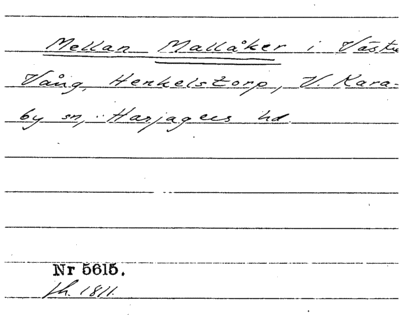 Mellan Mallåker i Västra
Vång, Henkelstorp, V. Kara-
by sn, Harjagers hd.
Nr 5615.
fh. 1811.